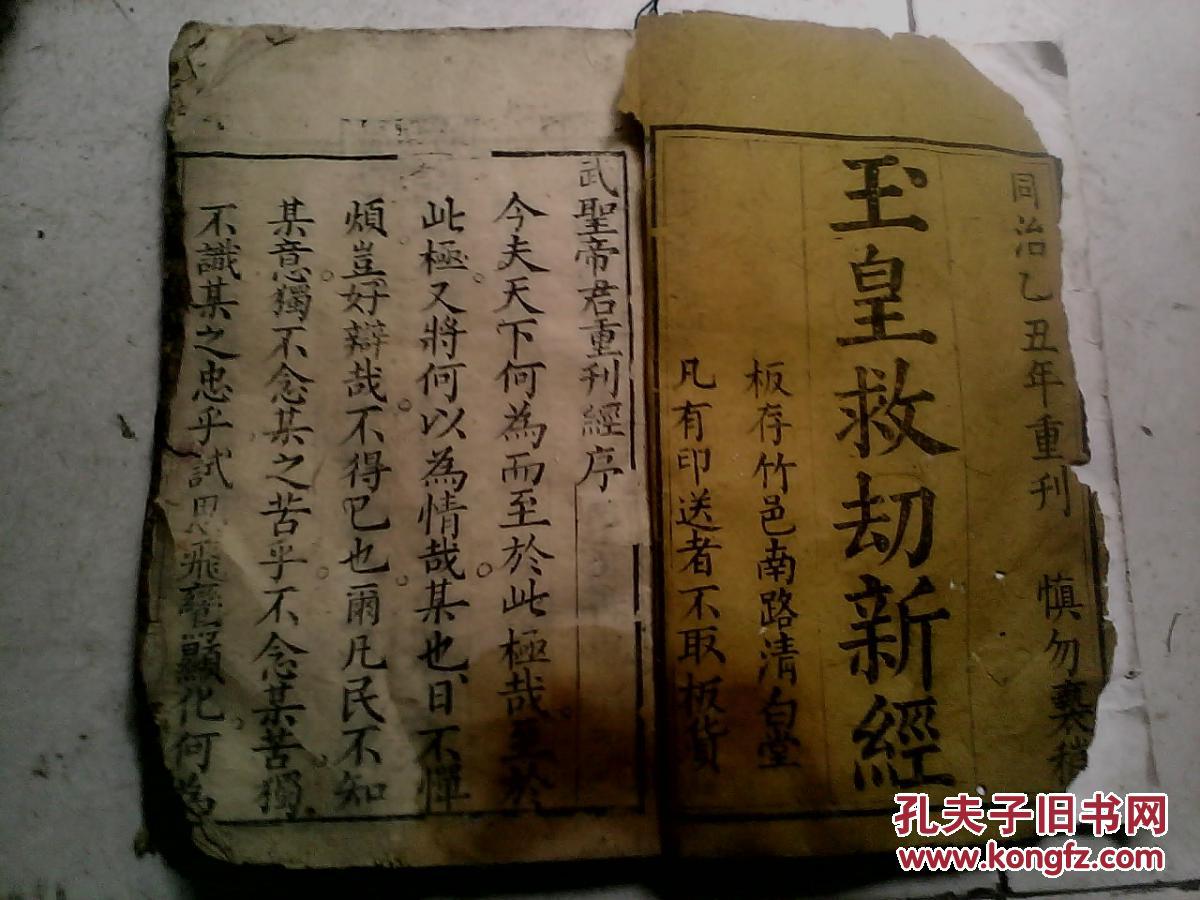 同治乙丑年重刊 慎勿褻
玉皇救劫新經
板存竹邑南路清白堂
凡有印送者不取板貲
武聖帝君重刊經序
今夫天下何為而至於此極哉至於
此極又將何以為情哉某也日不憚
煩豈好辯哉不得已也爾凡民不知
某意獨不念某之苦乎不念某苦獨
不識某之忠乎試思飛鸞顯化何為
孔夫子旧书网
www.kongfz.com